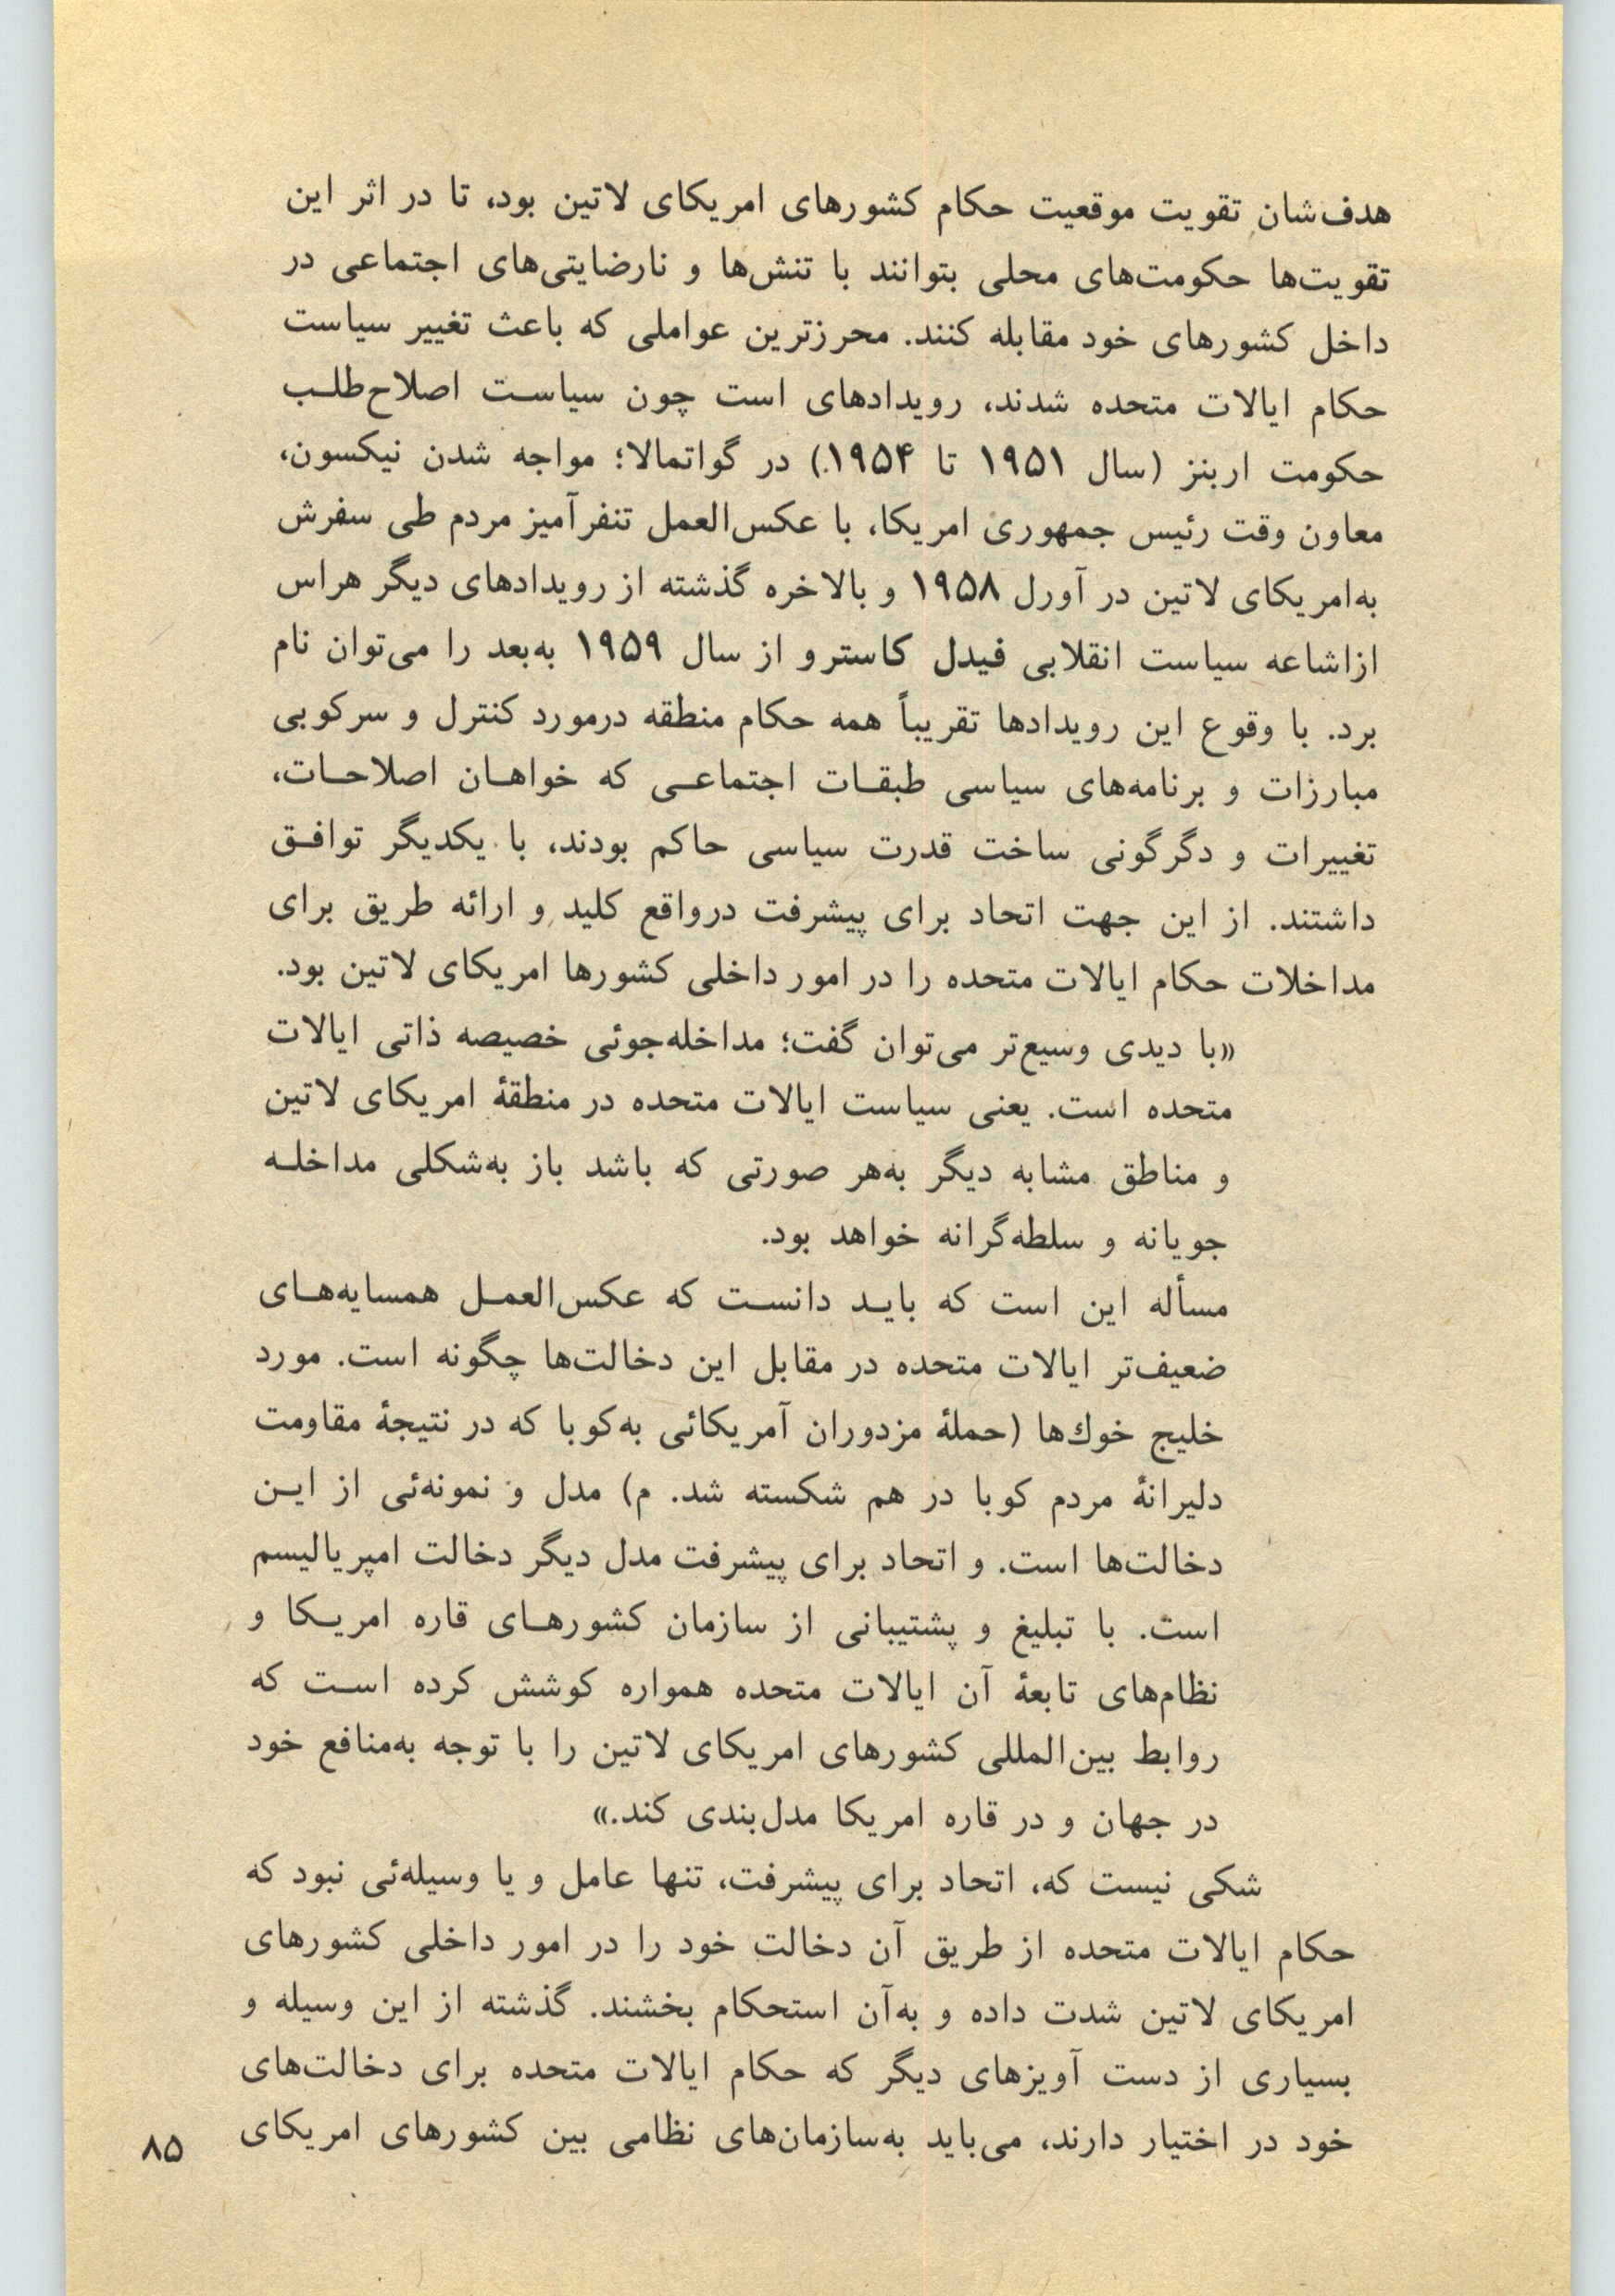 هدف‌شان تقویت موقعیت حکام کشورهای امریکای لاتین بود، تا در اثر این
تقویت‌ها حکومت‌های محلی بتوانند با تنش‌ها و نارضایتی‌های اجتماعی در
داخل کشورهای خود مقابله کنند. محرزترین عواملی که باعث تغییر سیاست
حکام ایالات متحده شدند، رویدادهای است چون سیاست اصلاح‌طلب
حکومت اربنز (سال ۱۹۵۱ تا ۱۹۵۴) در گواتمالا؛ مواجه شدن نیکسون،
معاون وقت رئیس جمهوری امریکا، با عکس‌العمل تنفرآمیز مردم طی سفرش
به‌امریکای لاتین در آورل ۱۹۵۸ و بالاخره گذشته از رویدادهای دیگر هراس
ازاشاعه سیاست انقلابی فیدل کاسترو از سال ۱۹۵۹ به‌بعد را می‌توان نام
برد. با وقوع این رویدادها تقریباً همه حکام منطقه درمورد کنترل و سرکوبی
مبارزات و برنامه‌های سیاسی طبقات اجتماعی که خواهان اصلاحات،
تغییرات و دگرگونی ساخت قدرت سیاسی حاکم بودند، با یکدیگر توافق
داشتند. از این جهت اتحاد برای پیشرفت درواقع کلید و ارائه طریق برای
مداخلات حکام ایالات متحده را در امور داخلی کشورها امریکای لاتین بود.
«با دیدی وسیع‌تر می‌توان گفت؛ مداخله‌جوئی خصیصه ذاتی ایالات
متحده است. یعنی سیاست ایالات متحده در منطقهٔ امریکای لاتین
و مناطق مشابه دیگر به‌هر صورتی که باشد باز به‌شکلی مداخله
جویانه و سلطه‌گرانه خواهد بود.
مسأله این است که باید دانست که عکس‌العمل همسایه‌های
ضعیف‌تر ایالات متحده در مقابل این دخالت‌ها چگونه است. مورد
خلیج خوك‌ها (حملهٔ مزدوران آمریکائی به‌کوبا که در نتیجهٔ مقاومت
دلیرانهٔ مردم کوبا در هم شکسته شد. م) مدل و نمونه‌ئی از این
دخالت‌ها است. و اتحاد برای پیشرفت مدل دیگر دخالت امپریالیسم
است. با تبلیغ و پشتیبانی از سازمان کشورهای قاره امریکا و
نظام‌های تابعهٔ آن ایالات متحده همواره کوشش کرده است که
روابط بین‌المللی کشورهای امریکای لاتین را با توجه به‌منافع خود
در جهان و در قاره امریکا مدل‌بندی کند.»
شکی نیست که، اتحاد برای پیشرفت، تنها عامل و یا وسیله‌ئی نبود که
حکام ایالات متحده از طریق آن دخالت خود را در امور داخلی کشورهای
امریکای لاتین شدت داده و به‌آن استحکام بخشند. گذشته از این وسیله و
بسیاری از دست آویزهای دیگر که حکام ایالات متحده برای دخالت‌های
خود در اختیار دارند، می‌باید به‌سازمان‌های نظامی بین کشورهای امریکای
۸۵